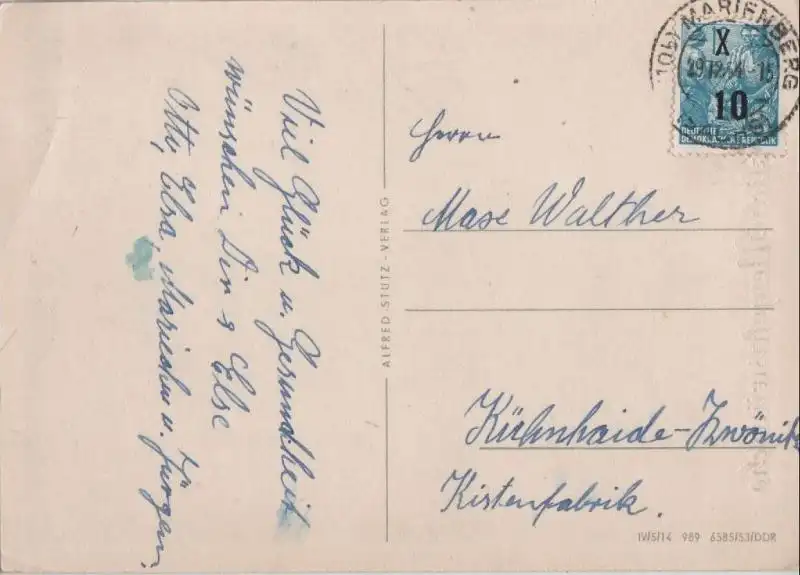 Viel Glück u. Gesundheit
wünschen Dir & Else
Otto, Elsa, Mariechen u. Jürgen.
ALFRED STUTZ-VERLAG
(10b) MARIENBERG
29.12.54-15
X
10
DEUTSCHE
DEMOKRATISCHE REPUBLIK
Herrn
Maxe Walther
Kühnhaide-Zwönitz
Kistenfabrik.
IV/5/14 989 6385/53/DDR